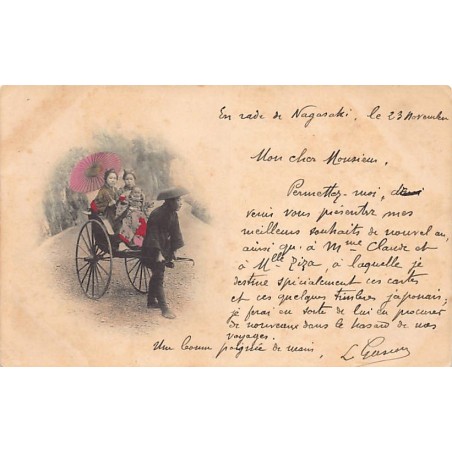 En rade de Nagasaki, le 23 Novembre
Mon cher Monsieur,
Permettez-moi, de
venir vous présenter mes
meilleurs souhaits de nouvel an,
ainsi qu'à Mme Claude et
à Mlle Ziza, à laquelle je
destine spécialement ces cartes
et ces quelques timbres japonais;
je ferai en sorte de lui en procurer
de nouveaux dans le hasard de nos
voyages.
Une bonne poignée de main,
L.